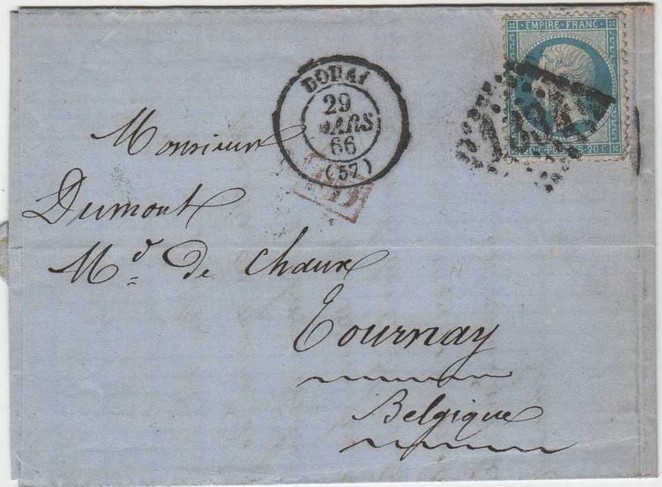 EMPIRE FRANC
20 C
DOUAI
29
MARS
66
(57)
Monsieur
Dumont
Md de Chaux
Tournay
Belgique